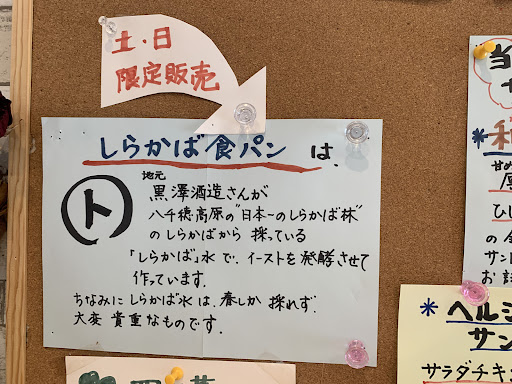 土・日
限定販売
しらかば食パン は、
ト
地元
黒澤酒造さんが
八千穂高原の"日本一のしらかば林"
のしらかばから 採っている
「しらかば」水で、イーストを発酵させて
作っています.
ちなみにしらかば水は、春しか採れず.
大変貴重なものです.
当
*
甘め
ひし
の
サンド
お
* ヘルシ
サン
サラダチキ